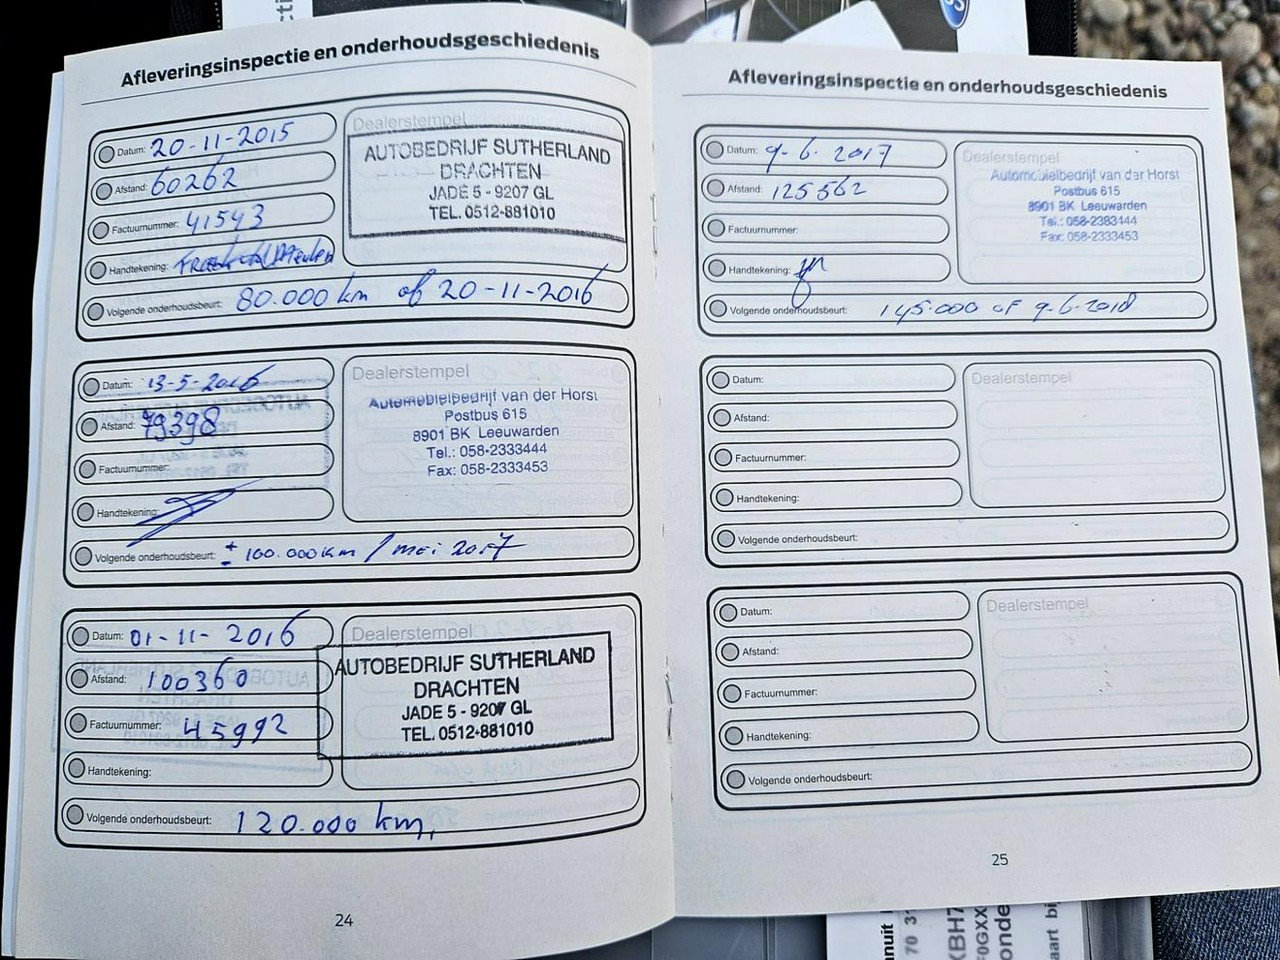 Afleveringsinspectie en onderhoudsgeschiedenis
Datum: 20-11-2015
Afstand: 60262
Factuurnummer: 41543
Handtekening:
Volgende onderhoudsbeurt: 80.000 km of 20-11-2016
Dealerstempel
AUTOBEDRIJF SUTHERLAND
DRACHTEN
JADE 5 - 9207 GL
TEL. 0512-881010
Datum: 13-5-2016
Afstand: 79398
Factuurnummer:
Handtekening:
Volgende onderhoudsbeurt: ± 100.000km / mei 2017
Dealerstempel
Automobielbedrijf van der Horst
Postbus 615
8901 BK Leeuwarden
Tel.: 058-2333444
Fax: 058-2333453
Datum: 01-11-2016
Afstand: 100360
Factuurnummer: 45992
Handtekening:
Volgende onderhoudsbeurt: 120.000 km,
Dealerstempel
AUTOBEDRIJF SUTHERLAND
DRACHTEN
JADE 5 - 9207 GL
TEL. 0512-881010
24
Afleveringsinspectie en onderhoudsgeschiedenis
Datum: 9-6-2017
Afstand: 125562
Factuurnummer:
Handtekening:
Volgende onderhoudsbeurt: 145.000 of 9-6-2018
Dealerstempel
Automobielbedrijf van der Horst
Postbus 615
8901 BK Leeuwarden
Tel.: 058-2333444
Fax: 058-2333453
Datum:
Afstand:
Factuurnummer:
Handtekening:
Volgende onderhoudsbeurt:
Dealerstempel
Datum:
Afstand:
Factuurnummer:
Handtekening:
Volgende onderhoudsbeurt:
Dealerstempel
25